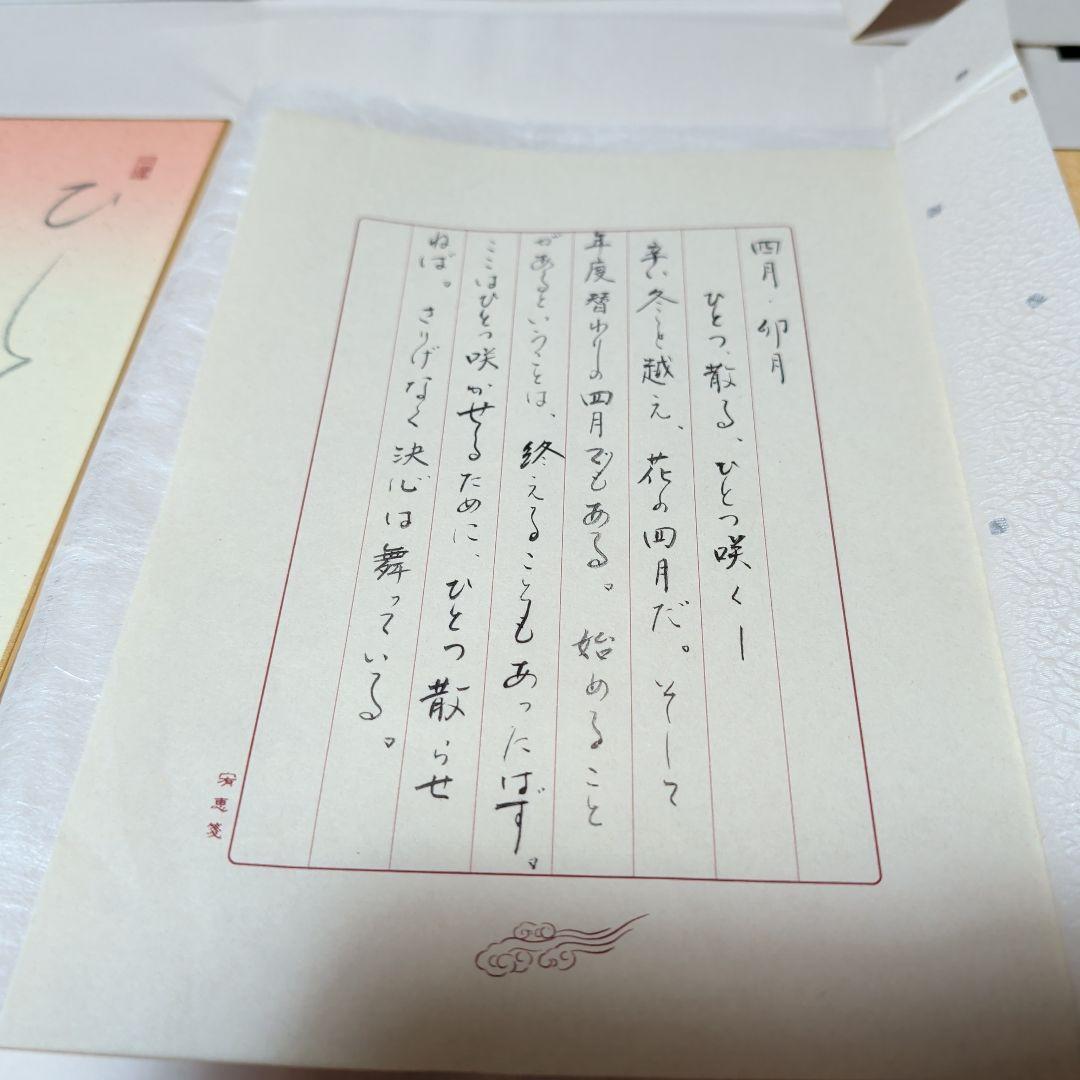 四月・卯月
ひとつ、散る、ひとつ咲くー
辛い冬を越え、花の四月だ。そして
年度替わりの四月でもある。始めること
があるということは、終えることもあったはず。
ここはひとつ咲かせるために、ひとつ散らせ
ねば。さりげなく決心は舞っている。
宥恵箋
ひら